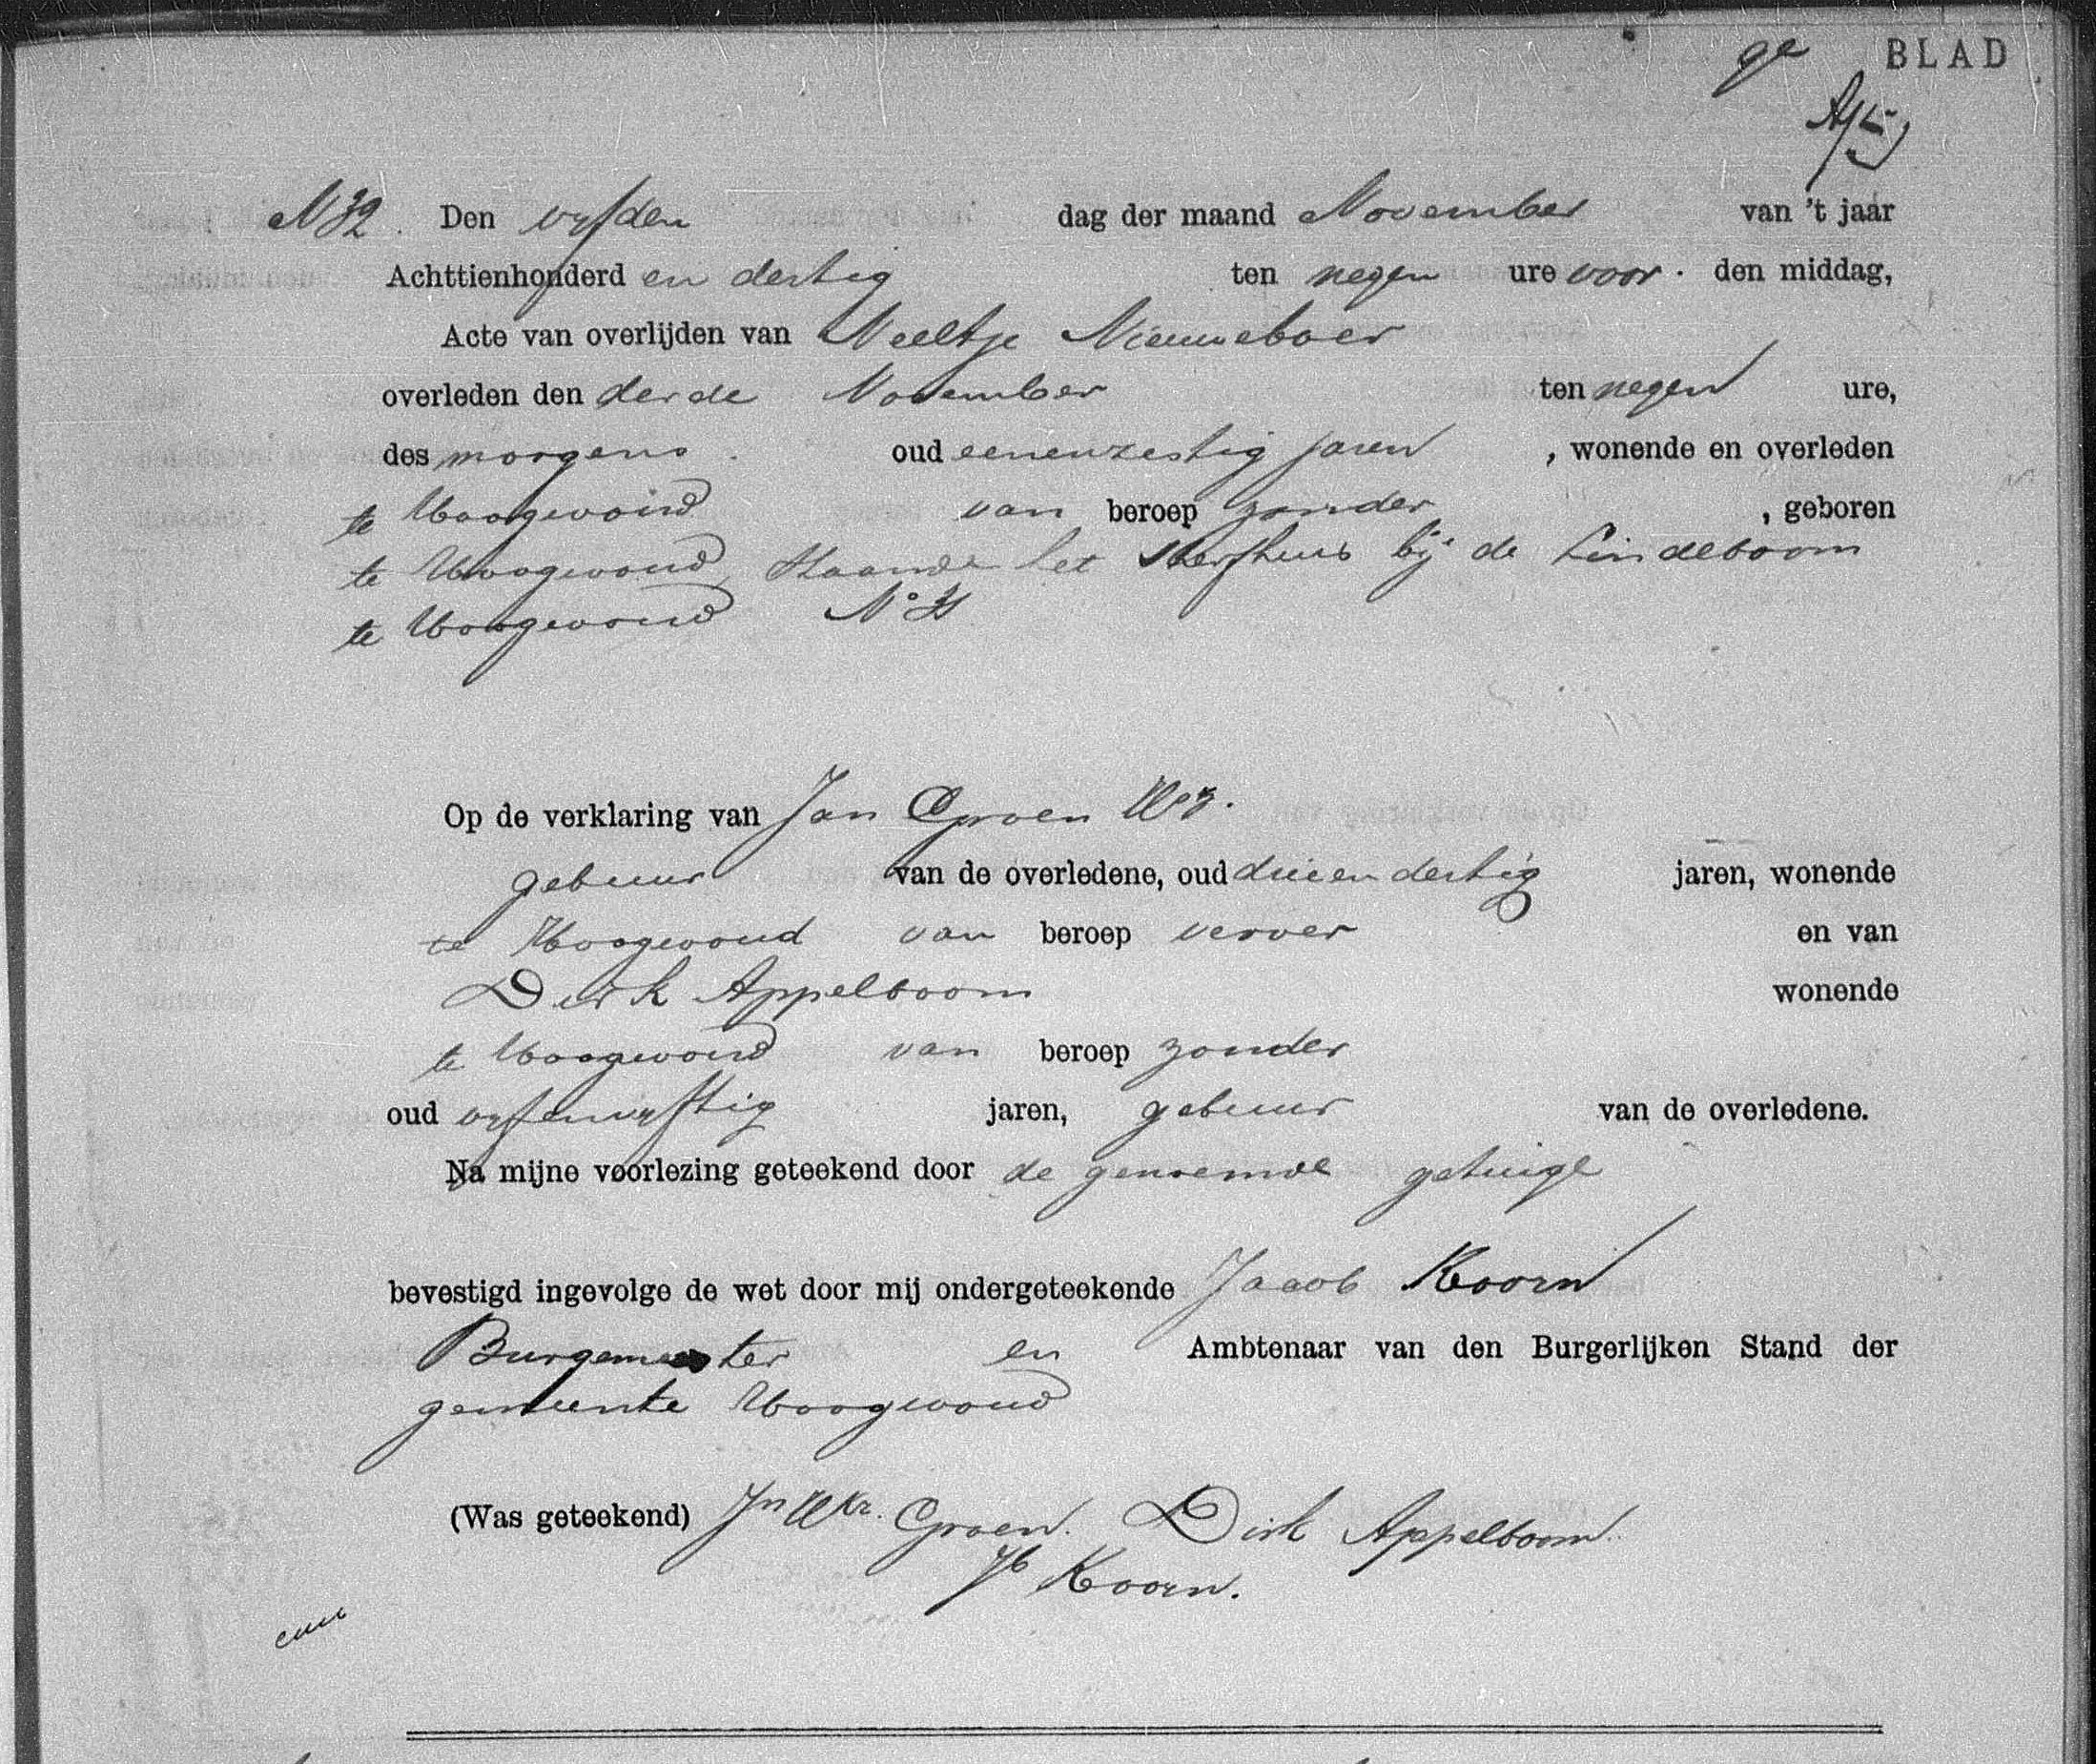 9e BLAD
N 32. Den vyfden dag der maand November van 't jaar
Achttienhonderd en dertig ten negen ure voor. den middag,
Acte van overlijden van Neeltje Nieuweboer
overleden den derde November ten negen ure,
des morgens. oud eenenzestig jaren, wonende en overleden
te Hoogwoud van beroep zonder, geboren
te Hoogwoud, Staande het Sterfhuis bij de Lindeboom
te Hoogwoud No
Op de verklaring van Jan Groen Wz.
gebuur van de overledene, oud drieendertig jaren, wonende
te Hoogwoud van beroep verver en van
Dirk Appelboom wonende
te Hoogwoud van beroep zonder
oud vyfenvyftig jaren, gebuur van de overledene.
Na mijne voorlezing geteekend door de genoemde getuige
bevestigd ingevolge de wet door mij ondergeteekende Jacob Koorn
Burgemeester en Ambtenaar van den Burgerlijken Stand der
gemeente Hoogwoud
(Was geteekend) Jn Groen. Dirk Appelboom.
Jb Koorn.